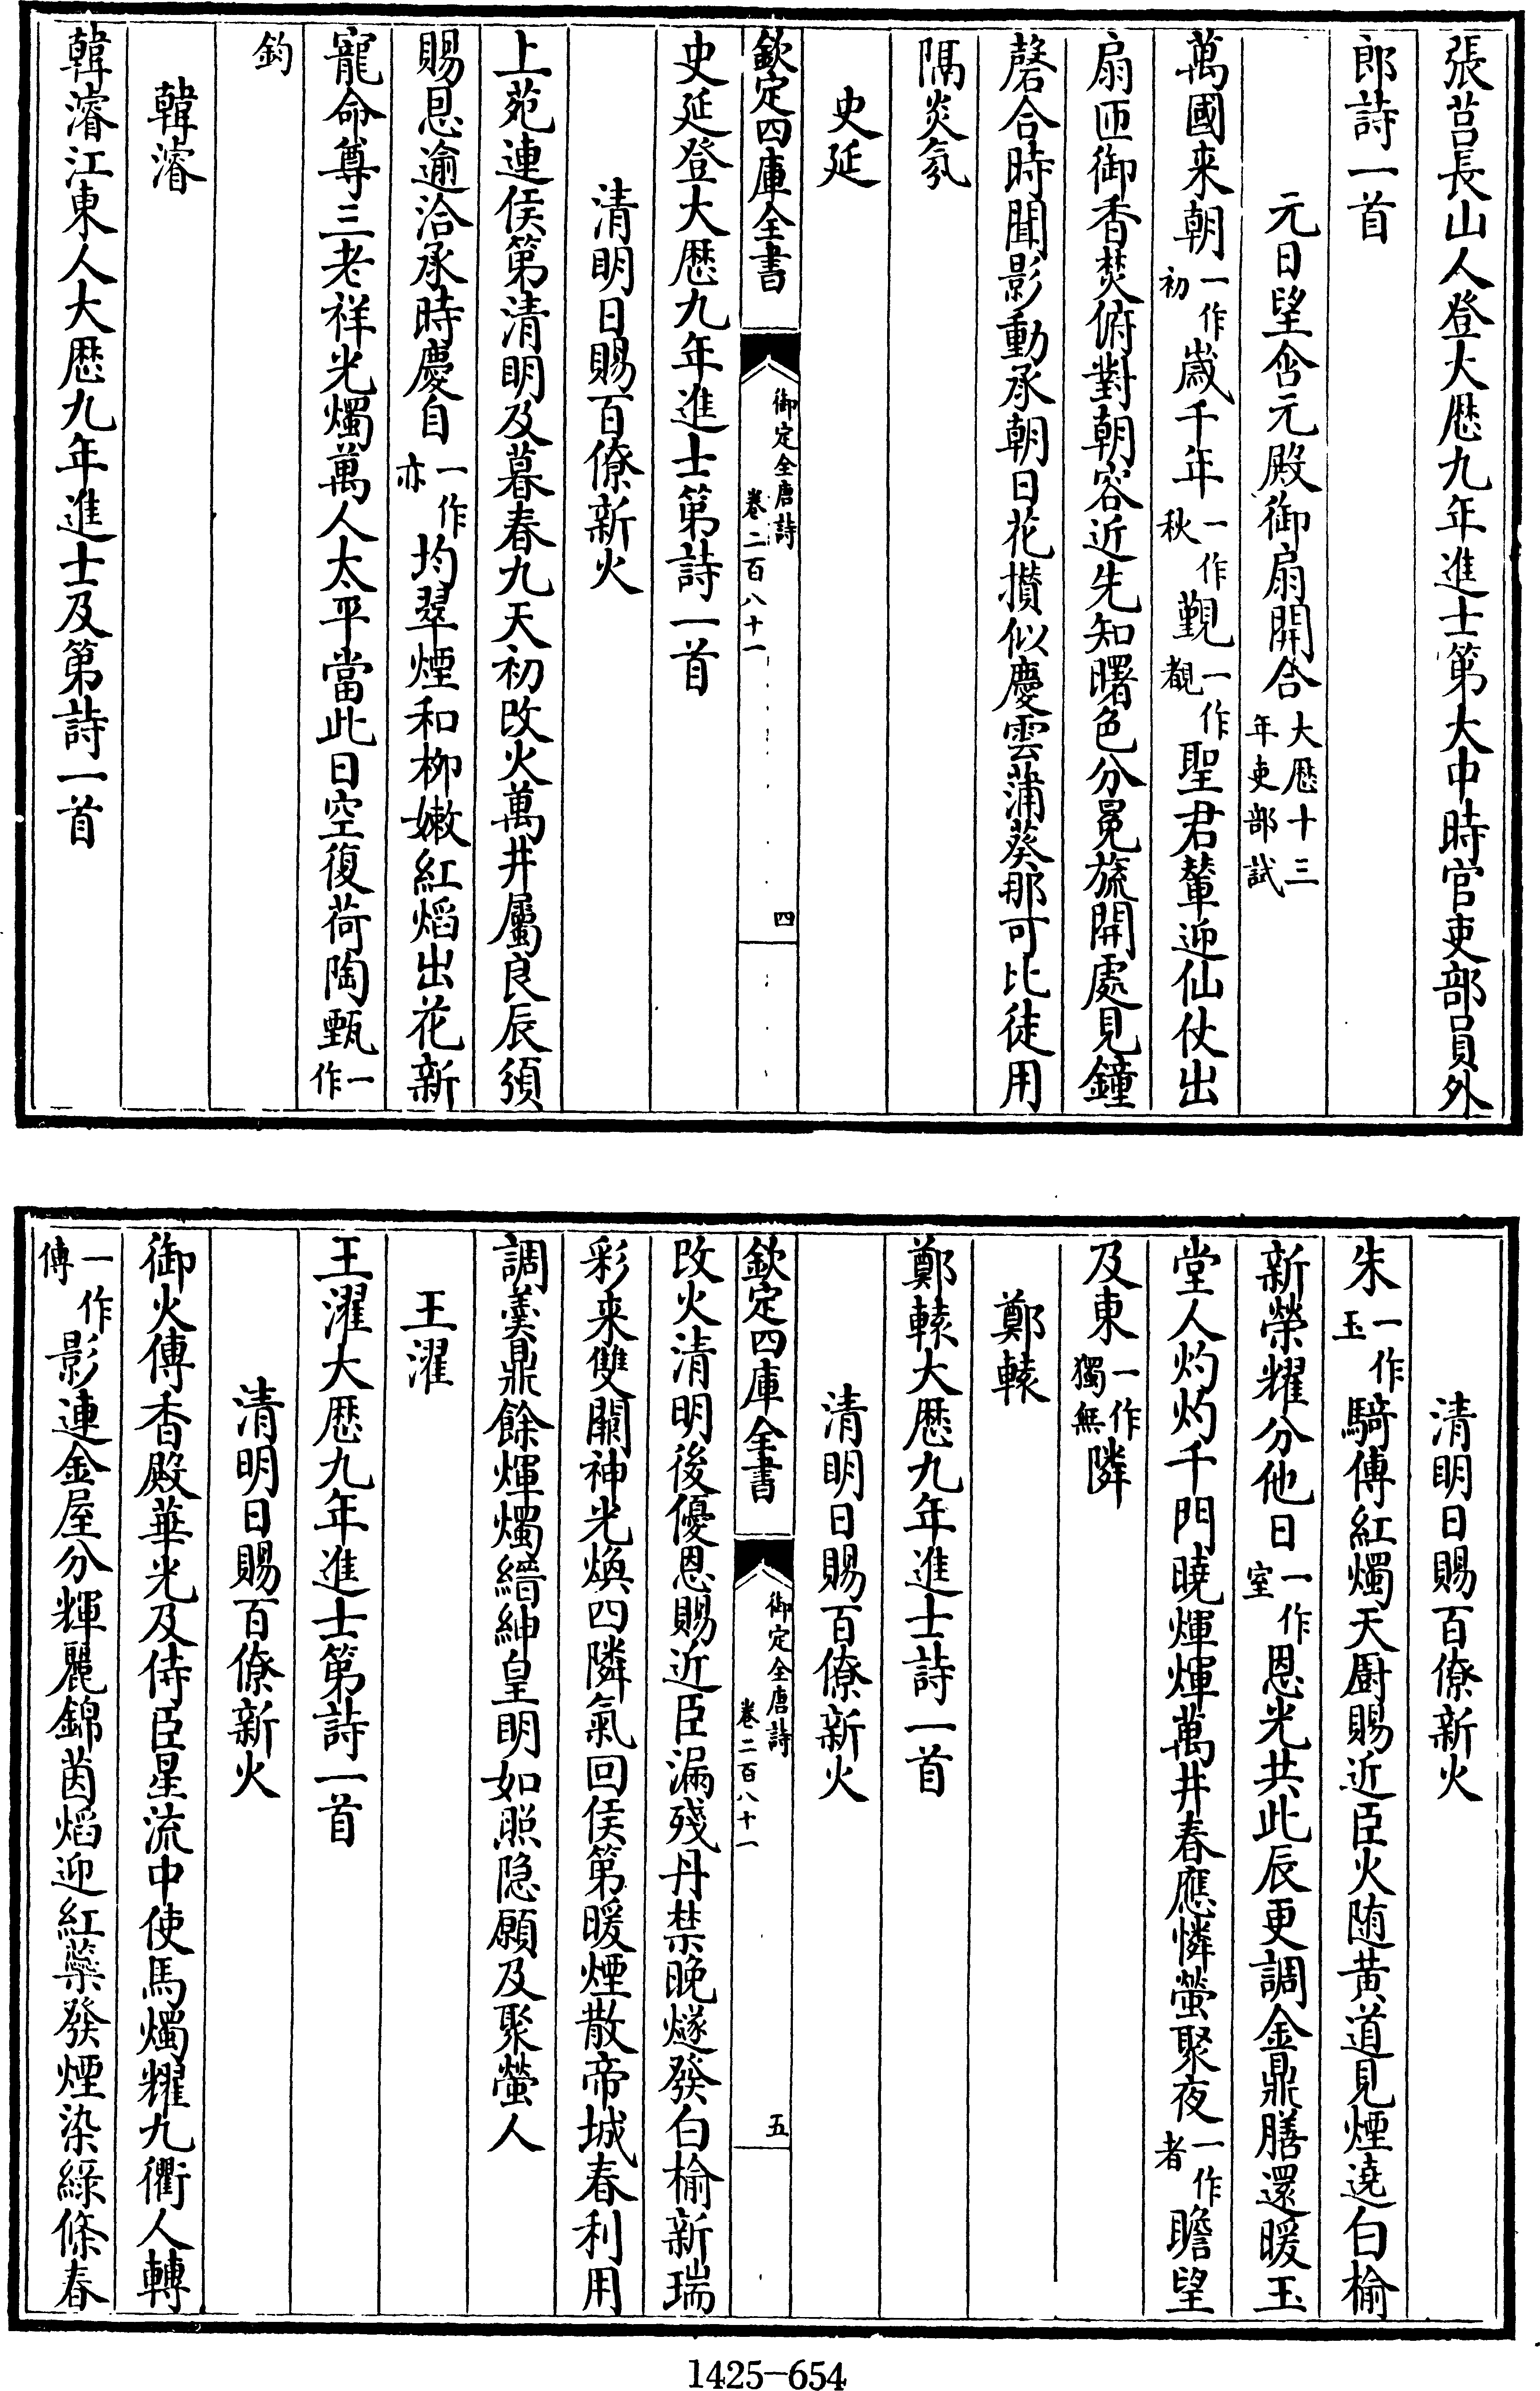 張莒長山人登大厯九年進士第大中時官吏部員外
郎詩一首
元日望含元殿御扇開合大厯十三年吏部試
萬國来朝一作初嵗千年一作秋覲一作覩聖君輦迎仙仗出
扇匝御香焚俯對朝容近先知曙色分冕旒開處見鐘
磬合時聞影動承朝日花攅似慶雲蒲葵那可比徒用
隔炎氛
史延
欽定四庫全書
御定全唐詩
卷二百八十一
四
史延登大厯九年進士第詩一首
清明日賜百僚新火
上苑連侯第清明及暮春九天初改火萬井屬良辰須
賜恩逾洽承時慶自一作亦均翠煙和栁嫩紅熖出花新
寵命尊三老祥光燭萬人太平當此日空復荷陶甄一作
鈞
韓濬
韓濬江東人大厯九年進士及第詩一首
清明日賜百僚新火
朱一作玉騎傳紅燭天厨賜近臣火随黄道見煙遶白榆
新榮耀分他日一作室恩光共此辰更調金鼎膳還暖玉
堂人灼灼千門曉煇煇萬井春應憐螢聚夜一作者瞻望
及東一作獨無隣
鄭轅
鄭轅大厯九年進士詩一首
清明日賜百僚新火
欽定四庫全書
御定全唐詩
卷二百八十一
五
改火清明後優恩賜近臣漏殘丹禁晚燧發白榆新瑞
彩来雙闕神光煥四隣氣回侯第暖煙散帝城春利用
調羮鼎餘煇燭縉紳皇明如照隐願及聚螢人
王濯
王濯大厯九年進士第詩一首
清明日賜百僚新火
御火傳香殿華光及侍臣星流中使馬燭耀九衢人轉
一作傳影連金屋分輝麗錦茵熖迎紅蘂發煙染綠條春
1425-654